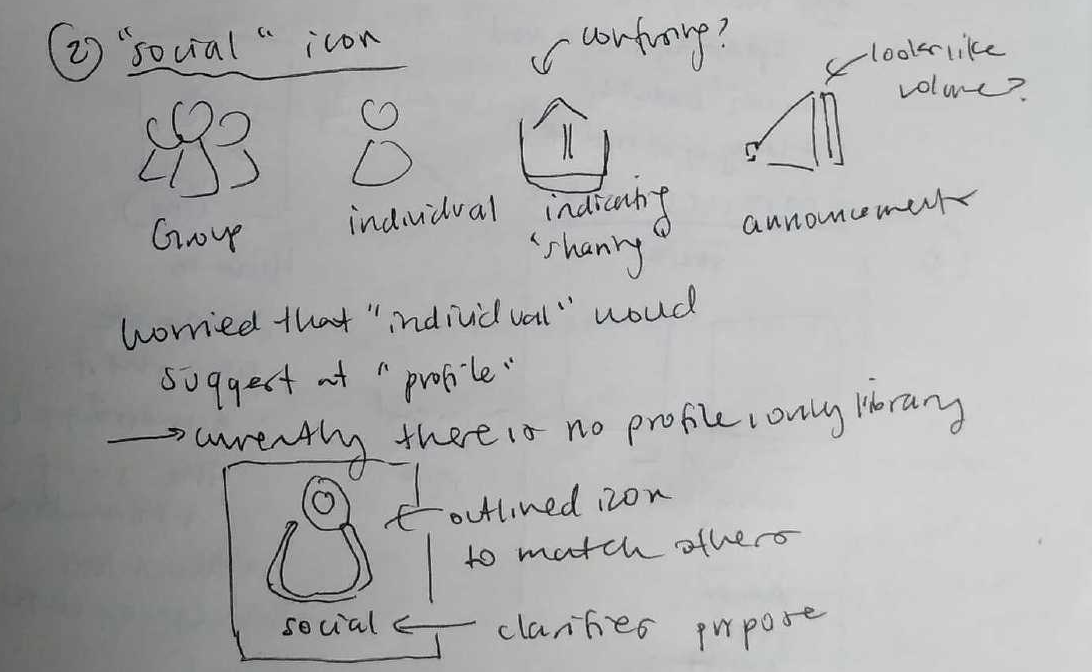 (2) "social" icon
confusing?
looks like
volume?
Group
individual
indicating
"sharing"
announcements
worried that "individual" would
suggest at "profile"
→ currently there is no profile, only library
← outlined icon
to match others
social ← clarifies purpose